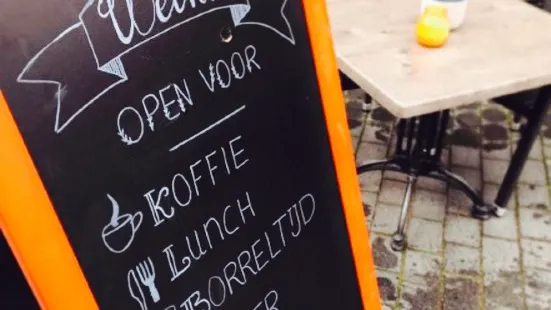 OPEN VOOR
KOFFIE
LUNCH
BORRELTIJD